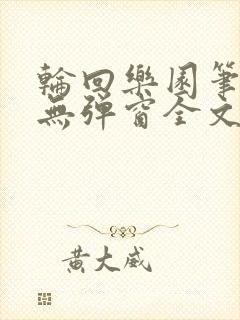 輪回樂園筆
無彈窗全文
黃大威